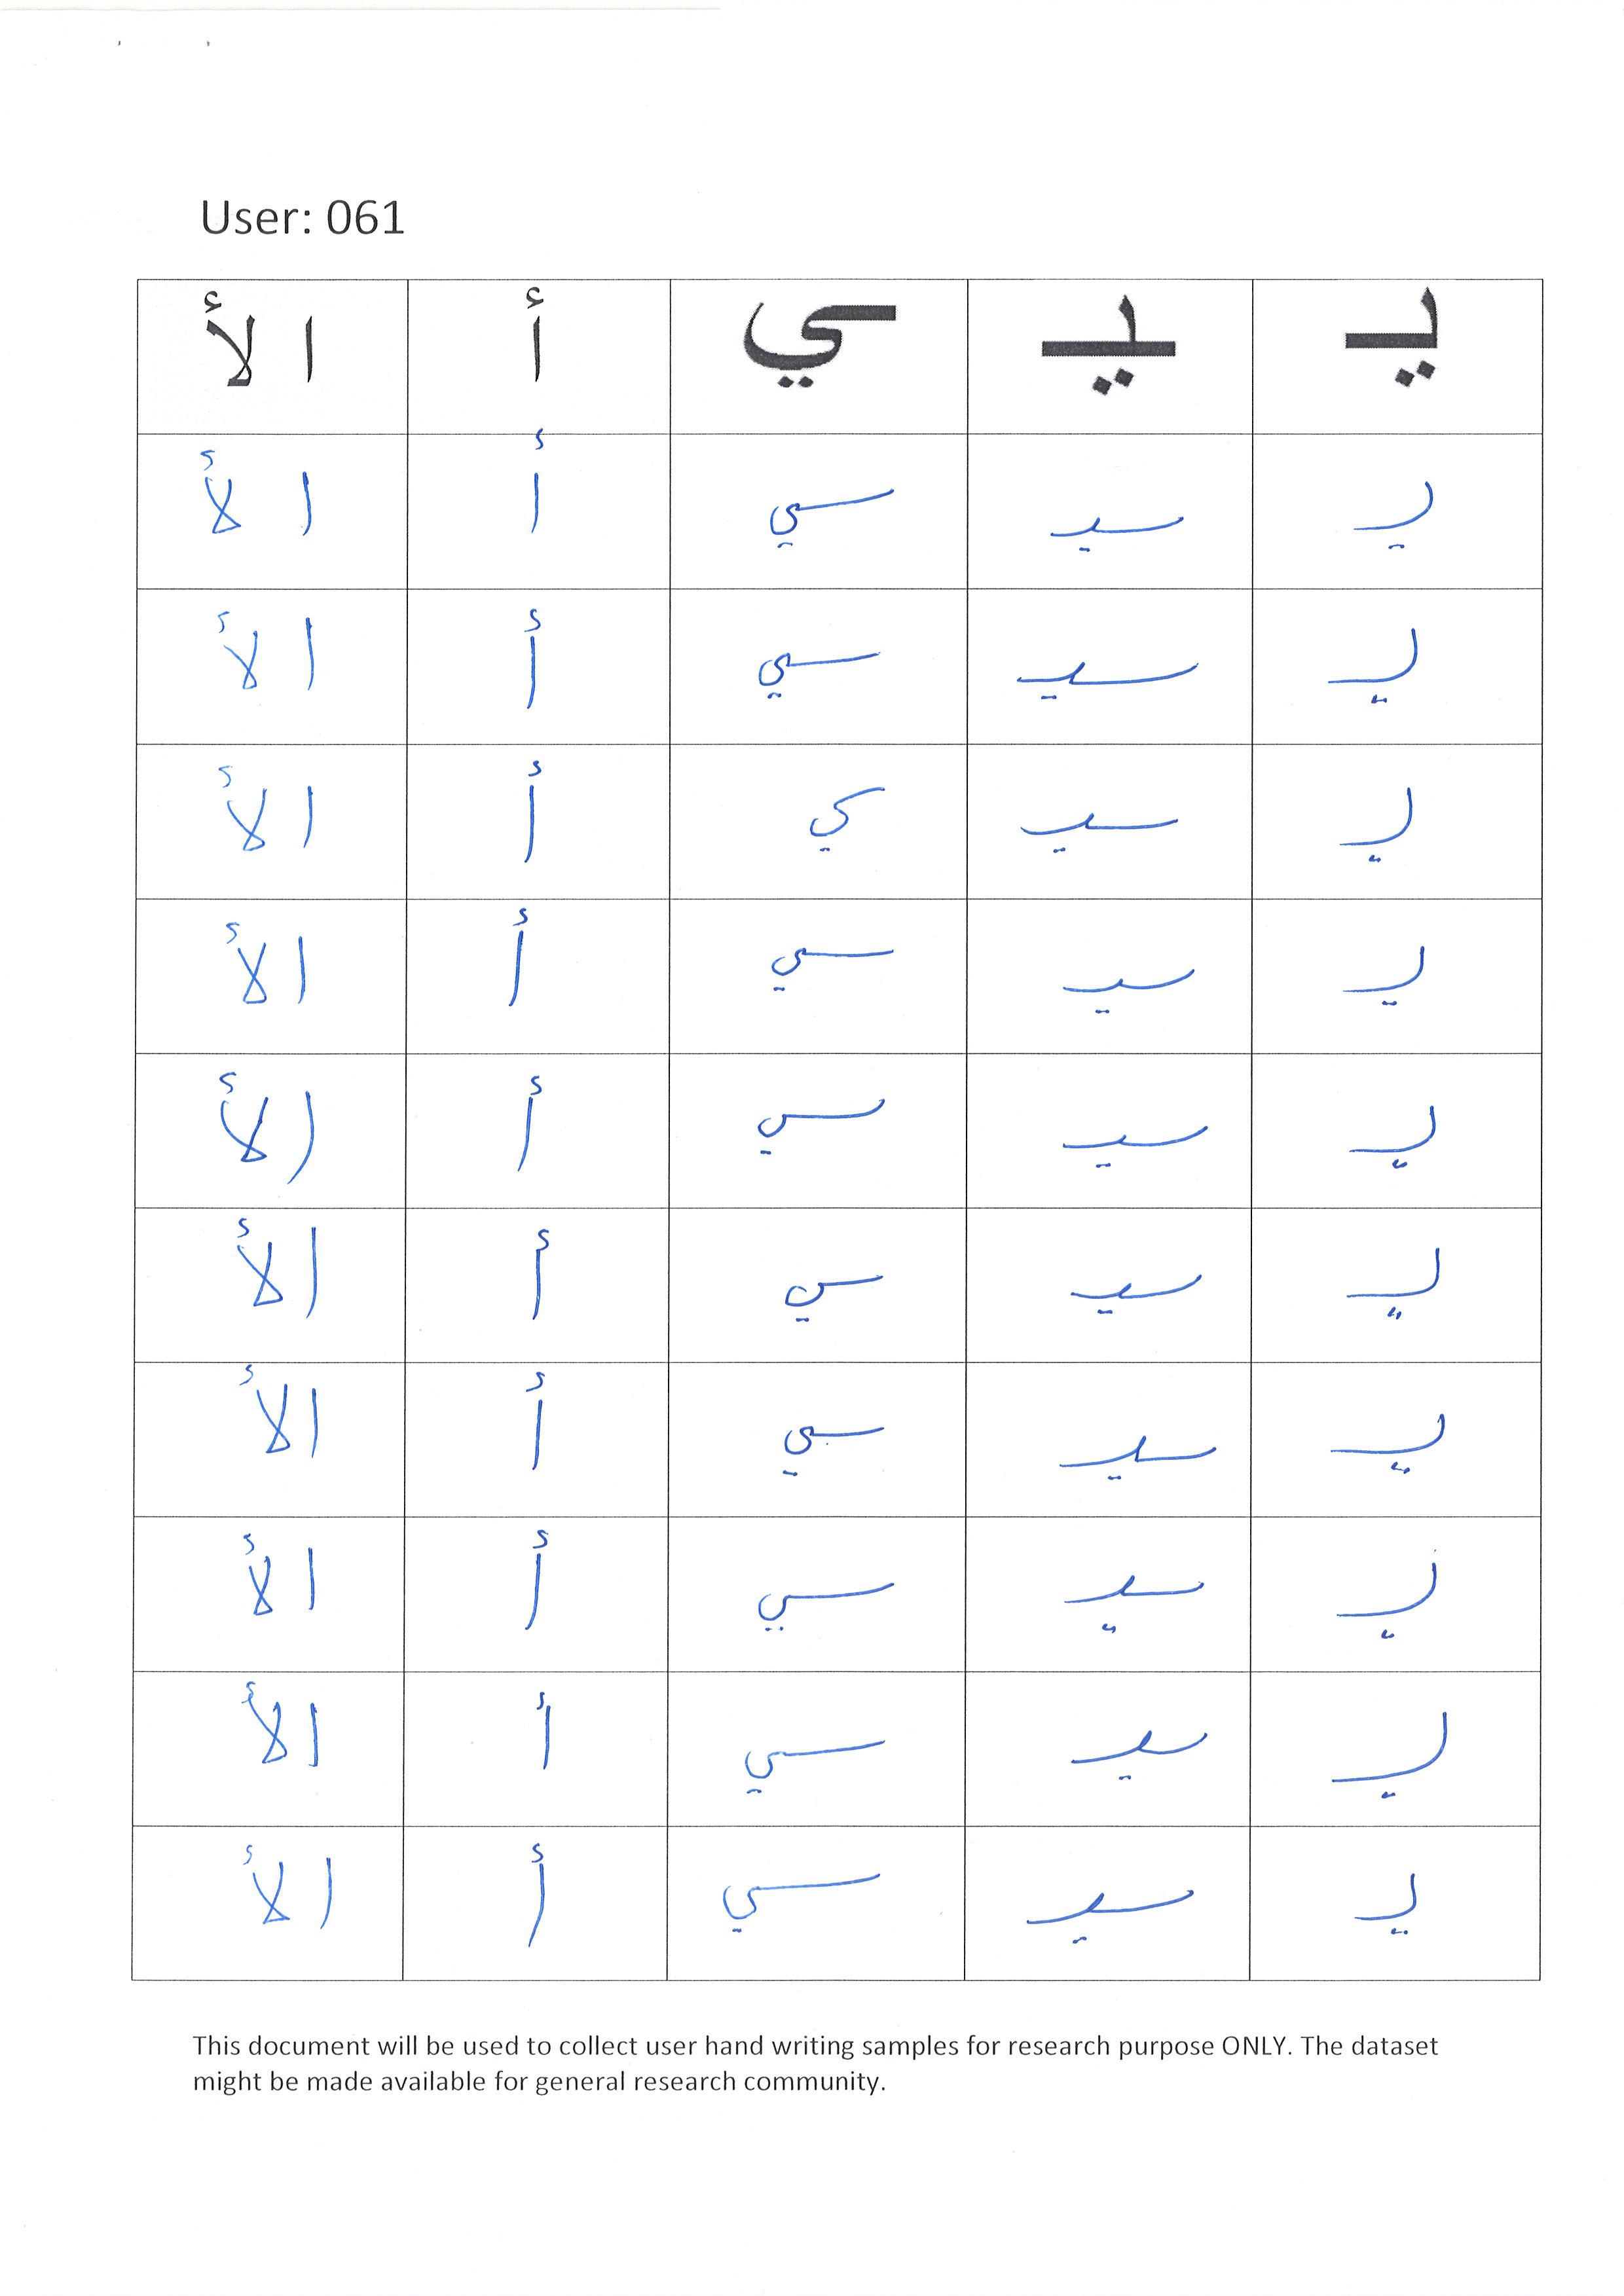 User: 061
يـ ـيـ ـي أ ا لأ
يـ ـيـ ـي أ ا لأ
يـ ـيـ ـي أ ا لأ
يـ ـيـ ـي أ ا لأ
يـ ـيـ ـي أ ا لأ
يـ ـيـ ـي أ ا لأ
يـ ـيـ ـي أ ا لأ
يـ ـيـ ـي أ ا لأ
يـ ـيـ ـي أ ا لأ
يـ ـيـ ـي أ ا لأ
يـ ـيـ ـي أ ا لأ
This document will be used to collect user hand writing samples for research purpose ONLY. The dataset
might be made available for general research community.